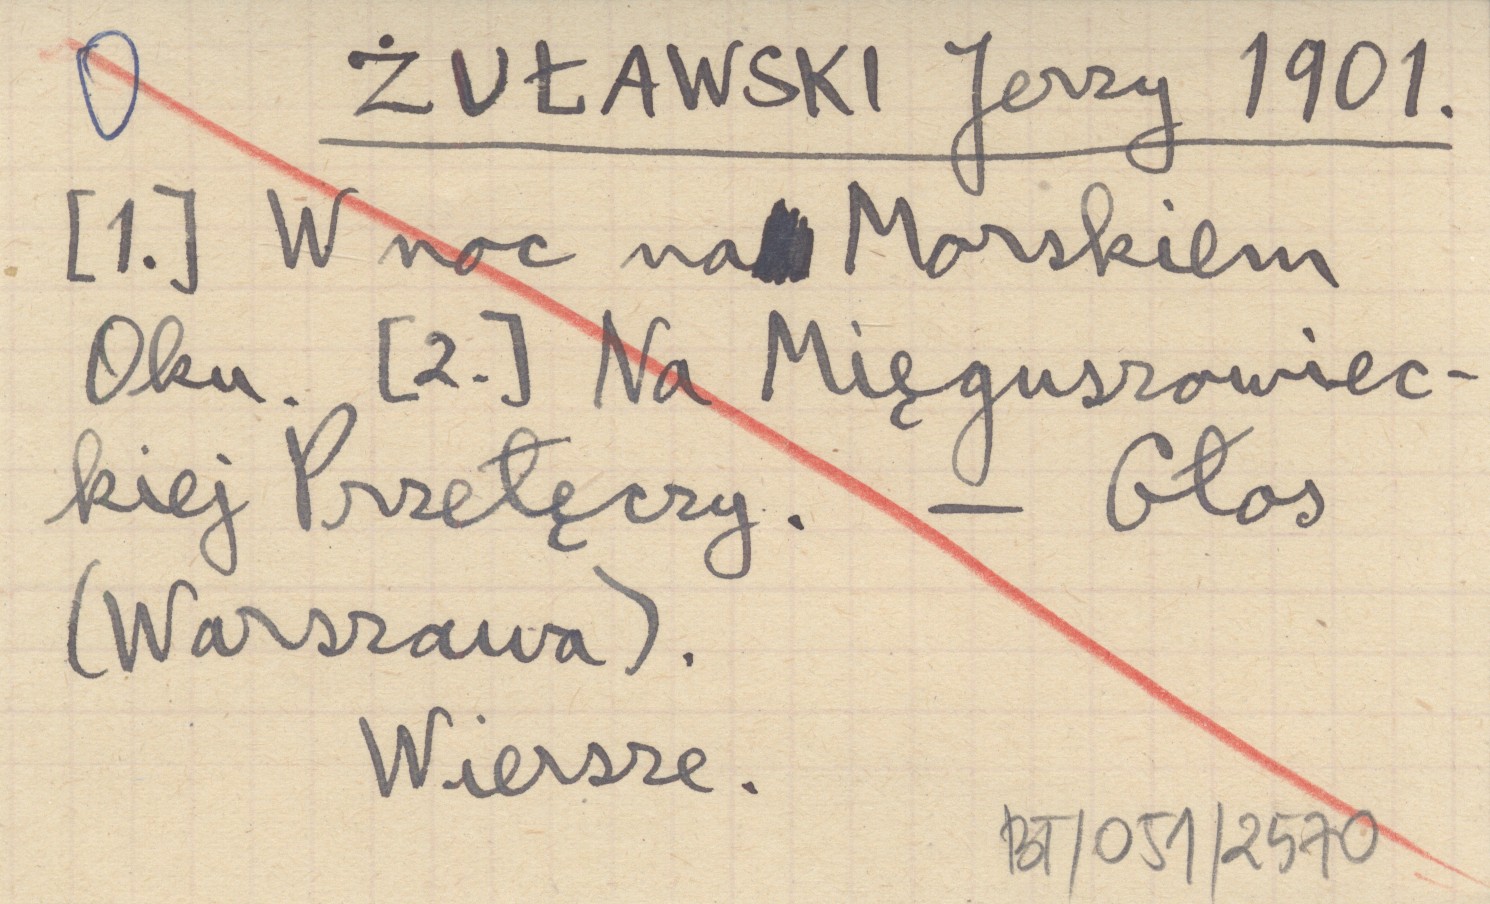 ŻUŁAWSKI Jerzy 1901.
[1.] W noc na Morskiem
Oku. [2.] Na Mięguszowiec-
kiej Przełęczy. — Głos
(Warszawa).
Wiersze.
BT/051/2570